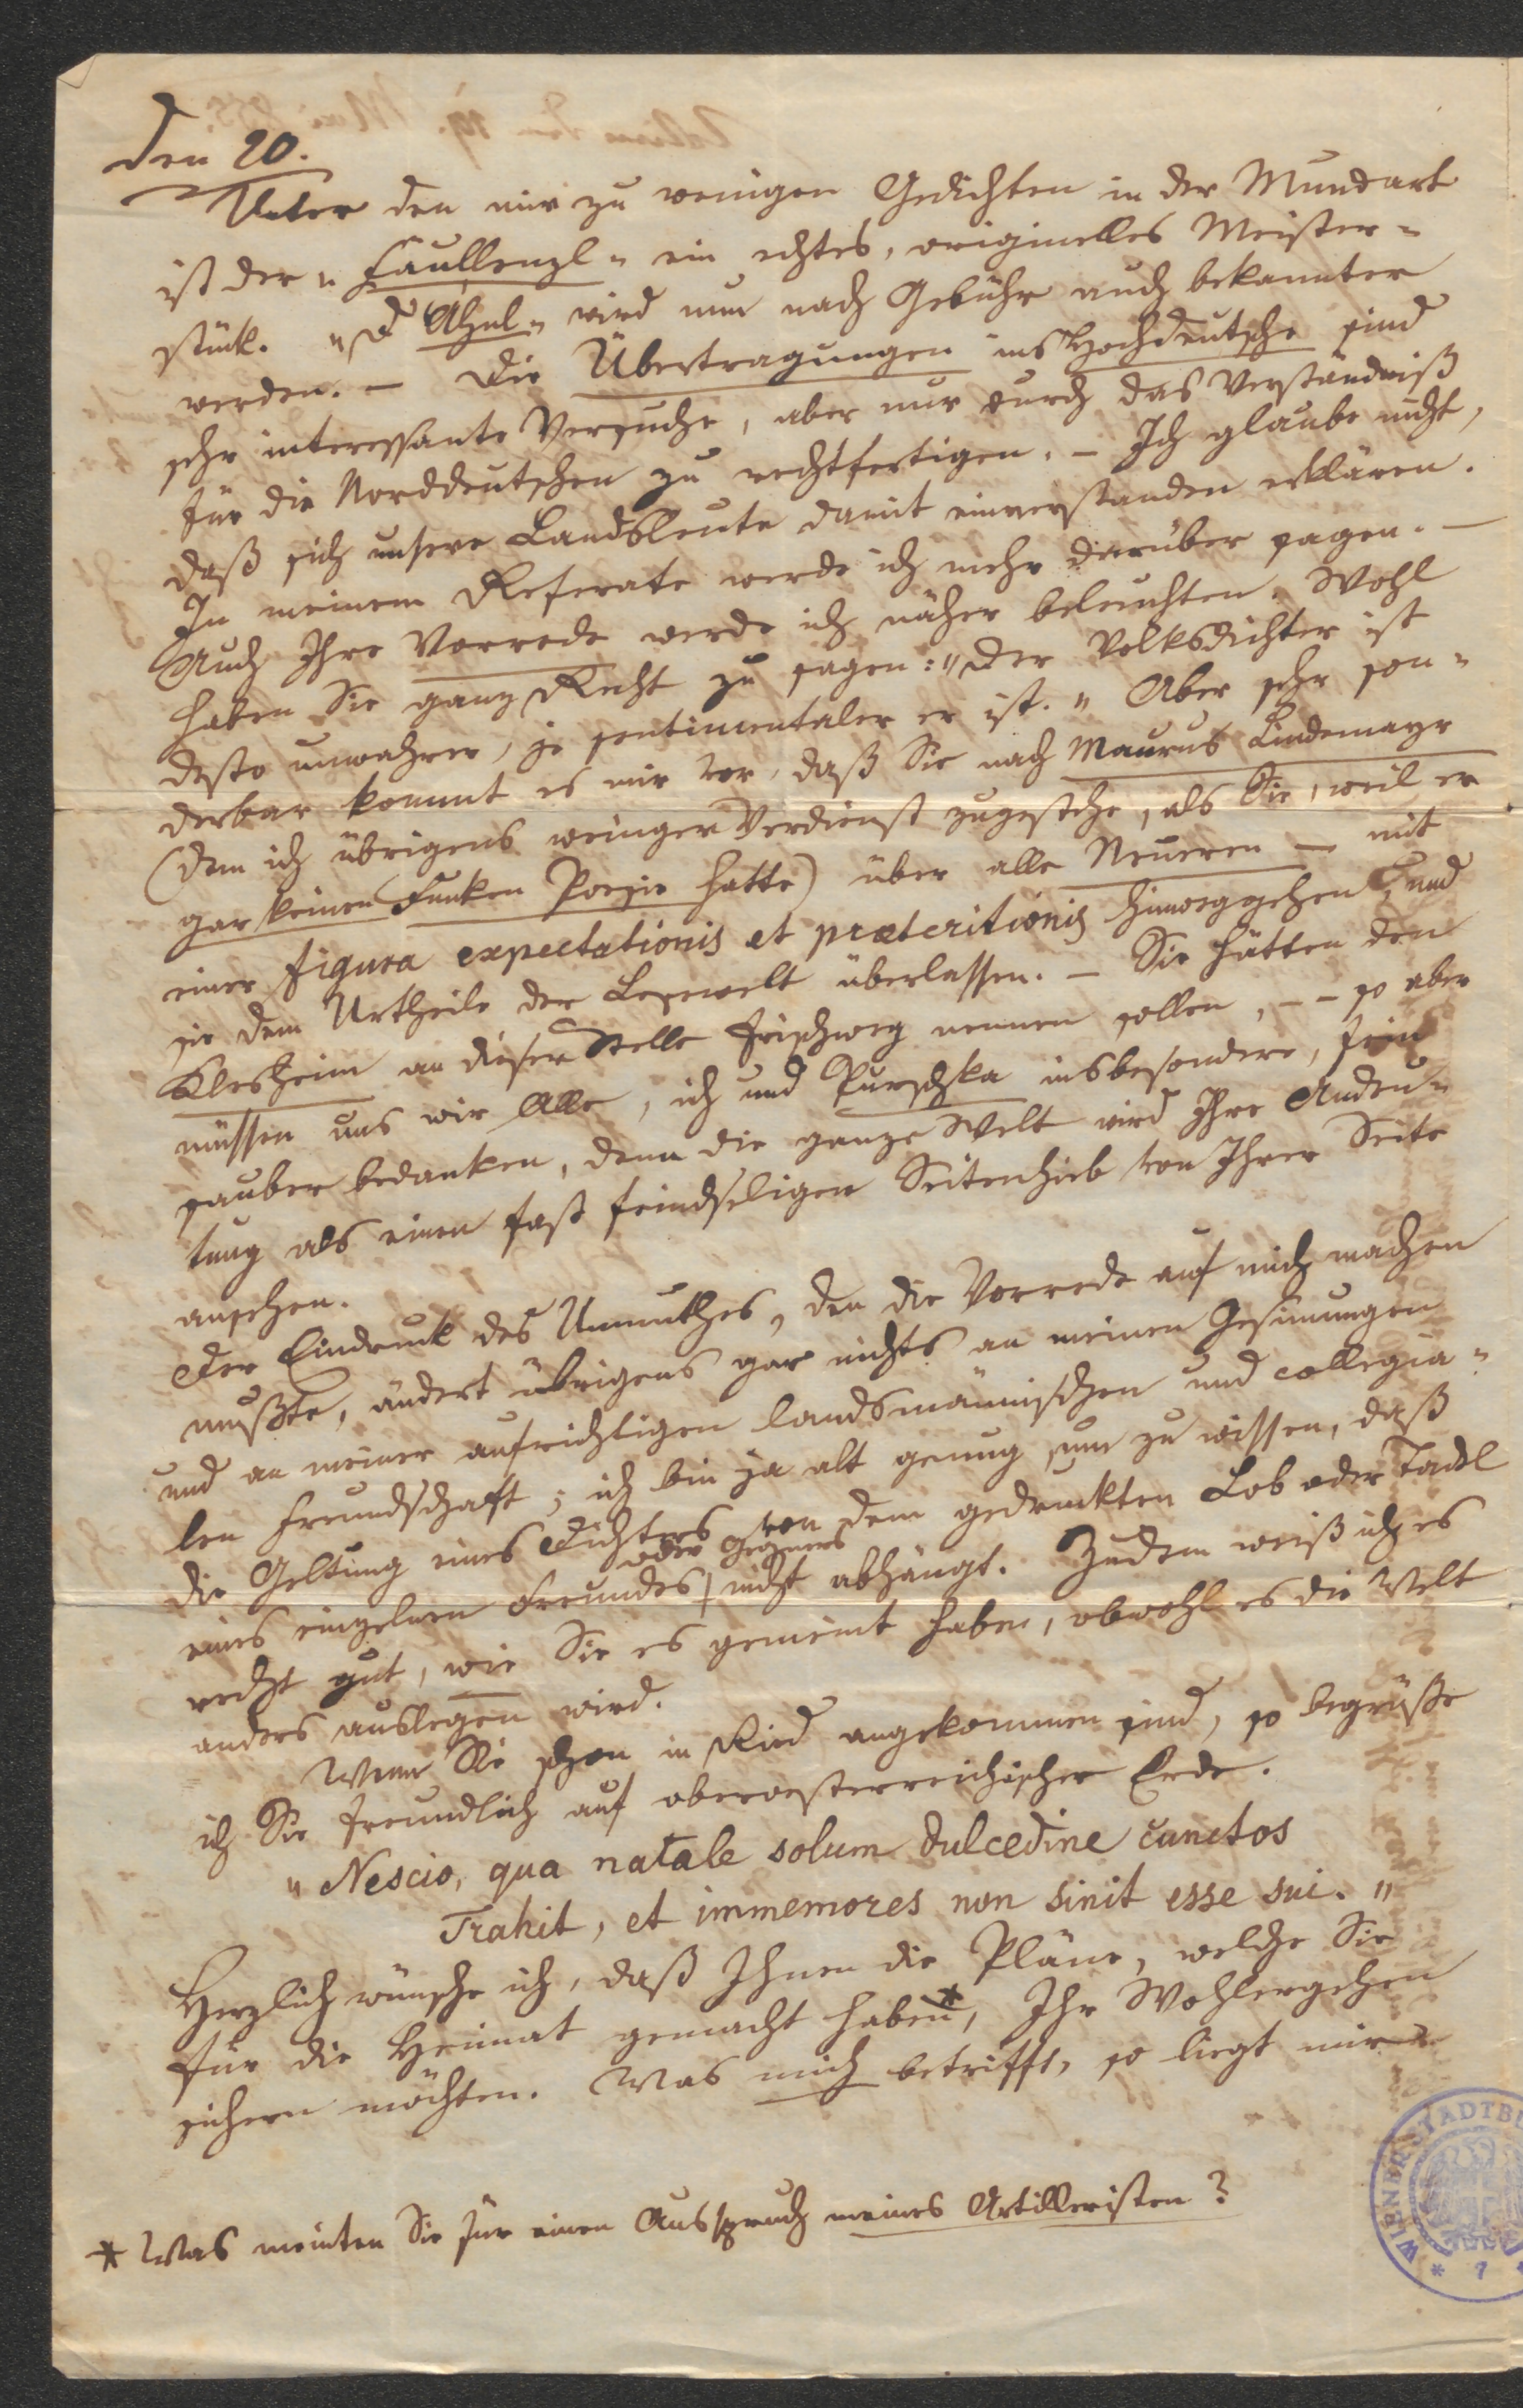 Den 20.
Unter den mir zu wenigen Gedichten in der Mundart
ist der „Faullenzl„ ein echtes, originelles Meister=
stück. „D' Ahnl„ wird nun nach Gebühr auch bekannter
werden. — Die Übertragungen ins Hochdeutsche sind
sehr interessante Versuche, aber nur durch das Verständniß
für die Norddeutschen zu rechtfertigen. — Ich glaube nicht,
daß sich unsere Landsleute damit einverstanden erklären.
In meinem Referate werde ich mehr darüber sagen. —
Auch Ihre Vorrede werde ich näher beleuchten. Wohl
haben Sie ganz Recht zu sagen: „Der Volksdichter ist
desto unwahrer, je sentimentaler er ist.„ Aber sehr son=
derbar kommt es mir vor, daß Sie nach Maurus Lindemayr
(dem ich übrigens weniger Verdienst zugestehe, als Sie, weil er
gar keinen Funken Poesie hatte) über alle Neueren — mit
einer figura expectationis et præteritionis hinweggehen, und
sie dem Urtheile der Lesewelt überlassen. — Sie hätten den
Klesheim an dieser Stelle frischweg nennen sollen, — — so aber
müssen uns wir Alle, ich und Purschka insbesondere, fein
sauber bedanken, denn die ganze Welt wird Ihre Andeu=
tung als einen fast feindseligen Seitenhieb von Ihrer Seite
ansehen.
Der Eindruck des Unmuthes, den die Vorrede auf mich machen
mußte, ändert übrigens gar nichts an meinen Gesinnungen
und an meiner aufrichtigen landsmännischen und collegia=
len Freundschaft; ich bin ja alt genug, um zu wissen, daß
die Geltung eines Dichters von dem gedruckten Lob oder Tadel
oder Gegners
eines einzelnen Freundes nicht abhängt. Zudem weiß ich es
recht gut, wie Sie es gemeint haben, obwohl es die Welt
anders auslegen wird.
Wenn Sie schon in Ried angekommen sind, so begrüße
ich Sie freundlich auf oberoesterreichischer Erde.
„Nescio, qua natale solum dulcedine cunctos
Trahit, et immemores non sinit esse sui.„
Herzlich wünsche ich, daß Ihnen die Pläne, welche Sie
für die Heimat gemacht haben*, Ihr Wohlergehen
sichern möchten. Was mich betrifft, so liegt mir
* Was meinten Sie für einen Ausspruch meines Artilleristen?
WIENER STADTB
* 7